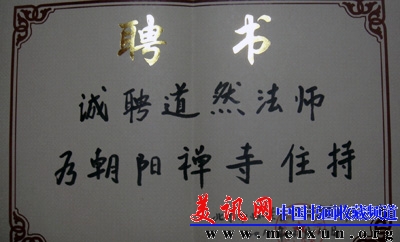 聘 书
诚聘道然法师
为朝阳禅寺住持
美讯网 中国书画收藏频道
www.meixun.org